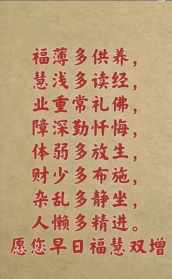 福薄多供养，
慧浅多读经，
业重常礼佛，
障深勤忏悔，
体弱多放生，
财少多布施，
杂乱多静坐，
人懒多精进。
愿您早日福慧双增